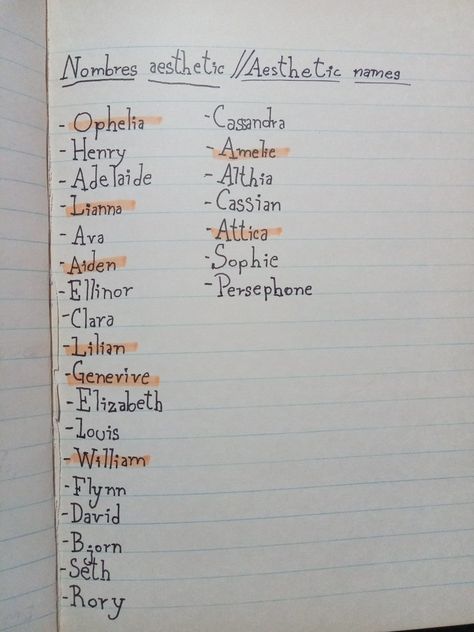 Nombres aesthetic // Aesthetic names
- Ophelia
- Henry
- Adelaide
- Lianna
- Ava
- Aiden
- Ellinor
- Clara
- Lilian
- Genevive
- Elizabeth
- Louis
- William
- Flynn
- David
- Bjorn
- Seth
- Rory
- Cassandra
- Amelie
- Althia
- Cassian
- Attica
- Sophie
- Persephone